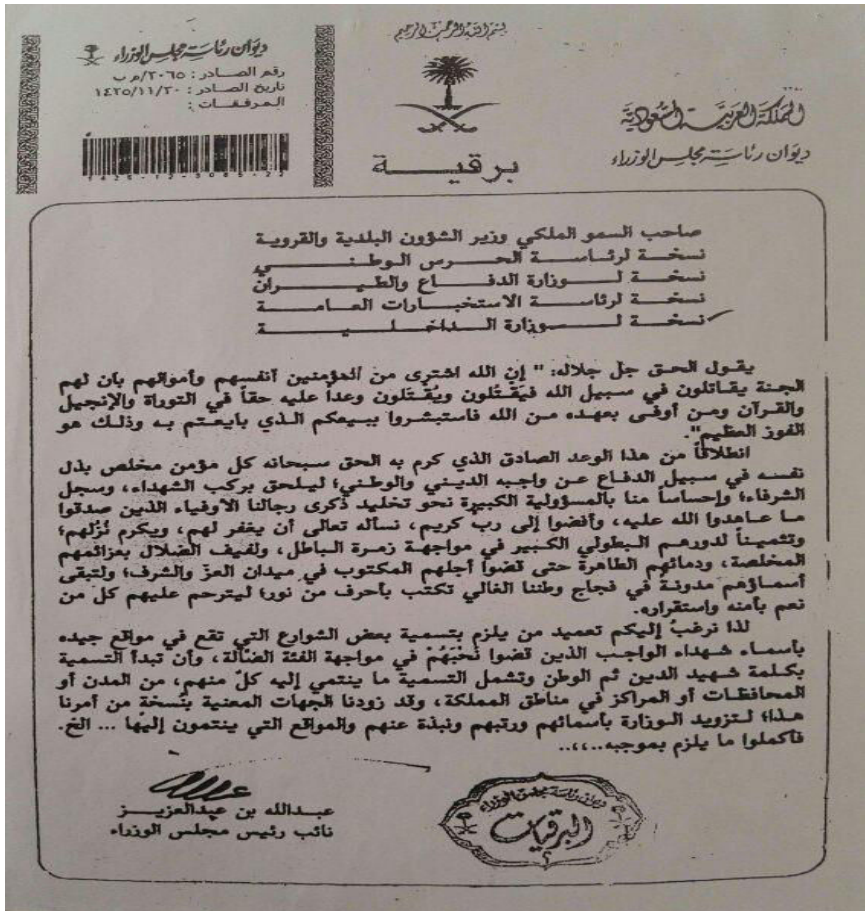 بسم الله الرحمن الرحيم
المملكة العربية السعودية
ديوان رئاسة مجلس الوزراء
برقية
ديوان رئاسة مجلس الوزراء
رقم الصادر : ٢٠٦٥/م ب
تاريخ الصادر : ١٤٢٥/١١/٢٠
المرفقات :
صاحب السمو الملكي وزير الشؤون البلدية والقروية
نسخة لرئاسة الحرس الوطني
نسخة لوزارة الدفاع والطيران
نسخة لرئاسة الاستخبارات العامة
نسخة لوزارة الداخلية
يقول الحق جل جلاله: " إن الله اشترى من المؤمنين أنفسهم وأموالهم بأن لهم
الجنة يقاتلون في سبيل الله فيَقتُلون ويُقتَلون وعداً عليه حقاً في التوراة والإنجيل
والقرآن ومن أوفى بعهده من الله فاستبشروا ببيعكم الذي بايعتم به وذلك هو
الفوز العظيم".
انطلاقاً من هذا الوعد الصادق الذي كرم به الحق سبحانه كل مؤمن مخلص بذل
نفسه في سبيل الدفاع عن واجبه الديني والوطني؛ ليلحق بركب الشهداء، وسجل
الشرفاء؛ وإحساساً منا بالمسؤولية الكبيرة نحو تخليد ذكرى رجالنا الأوفياء الذين صدقوا
ما عاهدوا الله عليه، وأفضوا إلى ربٍ كريم، نسأله تعالى أن يغفر لهم، ويكرم نُزُلهم؛
وتثميناً لدورهم البطولي الكبير في مواجهة زمرة الباطل، ولفيف الضلال بعزائمهم
المخلصة، ودمائهم الطاهرة حتى قضوا أجلهم المكتوب في ميدان العزّ والشرف؛ ولتبقى
أسماؤهم مدونةً في فجاج وطننا الغالي تكتب بأحرف من نور؛ ليترحم عليهم كل من
نعم بأمنه واستقراره.
لذا نرغبُ إليكم تعميد من يلزم بتسمية بعض الشوارع التي تقع في مواقع جيده
بأسماء شهداء الواجب الذين قضوا نَحْبَهُمْ في مواجهة الفئة الضالة، وأن تبدأ التسمية
بكلمة شهيد الدين ثم الوطن وتشمل التسمية ما ينتمي إليه كلّ منهم، من المدن أو
المحافظات أو المراكز في مناطق المملكة، وقد زودنا الجهات المعنية بنُسخة من أمرنا
هذا؛ لتزويد الوزارة بأسمائهم ورتبهم ونبذة عنهم والمواقع التي ينتمون إليها ... الخ.
فأكملوا ما يلزم بموجبه..،،..
عبدالله بن عبدالعزيز
نائب رئيس مجلس الوزراء
ديوان رئاسة مجلس الوزراء
البرقيات